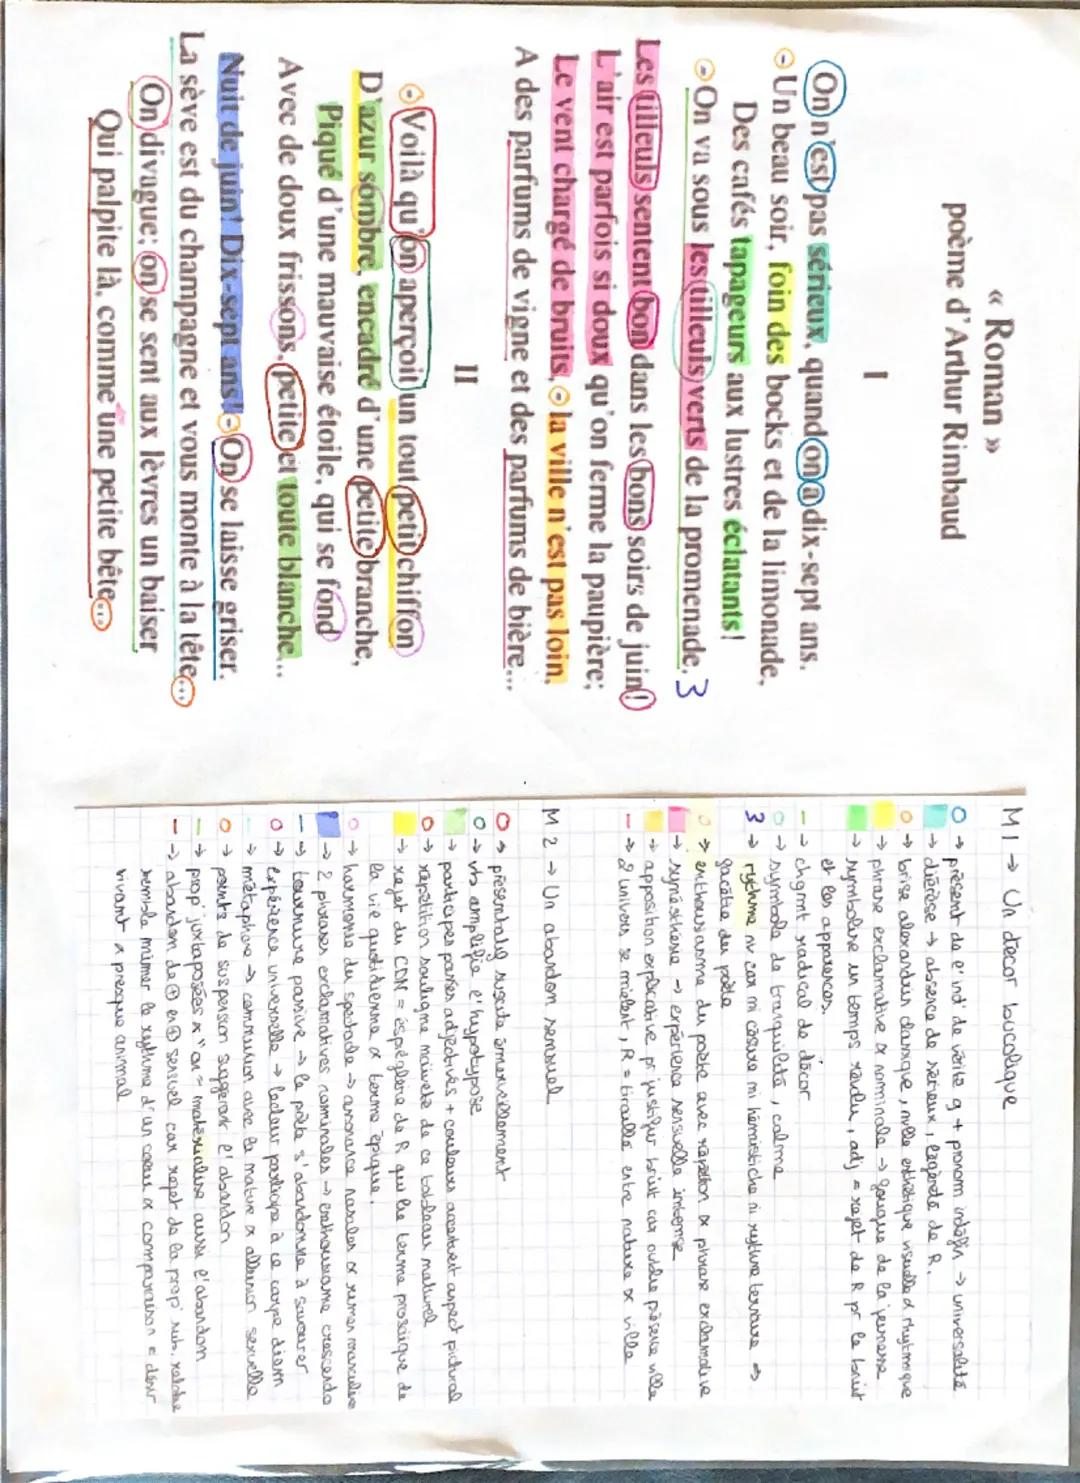 « Roman »
poème d'Arthur Rimbaud
I
On n'est pas sérieux, quand on a dix-sept ans.
Un beau soir, foin des bocks et de la limonade,
Des cafés tapageurs aux lustres éclatants!
On va sous les tilleuls verts de la promenade. 3
Les tilleuls sentent bon dans les bons soirs de juin!
L'air est parfois si doux qu'on ferme la paupière;
Le vent chargé de bruits, la ville n'est pas loin,
A des parfums de vigne et des parfums de bière...
II
Voilà qu'on aperçoit un tout petit chiffon
D'azur sombre, encadré d'une petite branche,
Piqué d'une mauvaise étoile, qui se fond
Avec de doux frissons, petite et toute blanche...
Nuit de juin! Dix-sept ans! On se laisse griser.
La sève est du champagne et vous monte à la tête...
On divague; on se sent aux lèvres un baiser
Qui palpite là, comme une petite bête...
M1 → Un decor bucolique
→ présent de l'ind' de vérité g + pronom indéfin → universalité
→ dièrèse → absence de sérieux, légèreté de R.
→ brise alexandrin classique, nvlle esthétique visuelle & rhytmique
→ phrase exclamative & nominale → fougue de la jeunesse
→ symbolise un temps révolu, adj = rejet de R pr le bruit
et les apparences.
→ chgmt radical de décor
→ symbole de tranquilité, calme
3 → rythme nv car ni césure ni hémistiche ni rythme ternaire →
facétie du poète
→ enthousiasme du poète avec répétition & phrase exclamative
→ synésthésie → expérience sensuelle intense
→ apposition explicative pr justifier bruit car oublie présence ville
→ 2 univers se mielent, R = tiraillé entre nature & ville
M2 → Un abandon sensuel
→ présentatif suscite émerveillement
→ vb amplifie l'hypotypose
→ participes passés adjectivés + couleurs accentuent aspect pictural
→ répétition souligne naïveté de ce tableau naturel
→ rejet du CDN = éspièglerie de R qui lie terme prosaïque de
la vie quotidienne & terme épique.
→ harmonie du spectacle → assonance nasales & rimes masculine
→ 2 phrases exclamatives nominales → enthousiasme crescendo
→ tournure passive → le poète s'abandonne à savourer
→ expérience universelle → lecteur participe à ce carpe diem
→ métaphore → communion avec la nature & allusion sexuelle
→ points de suspension suggèrent l'abandon
→ prop' juxtaposées x "on" = matérialise aussi l'abandon
→ abandon de ⊕ en ⊕ sensuel car rejet de la prop' sub. relative
semble mimer le rythme d'un cœur & comparaison = désir
vivant & presque animal